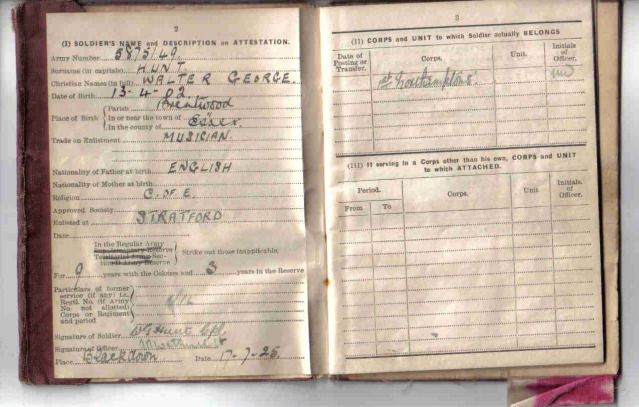 2
(I) SOLDIER'S NAME and DESCRIPTION on ATTESTATION.
Army Number 5875149.
Surname (in capitals) HUNT
Christian Names (in full) WALTER GEORGE.
Date of Birth 13-4-02.
Place of Birth
Parish Brentwood
In or near the town of
In the county of Essex.
Trade on Enlistment MUSICIAN.
Nationality of Father at birth ENGLISH
Nationality of Mother at birth
Religion C. of E.
Approved Society
Enlisted at STRATFORD
Date
In the Regular Army
Supplementary Reserve
Territorial Army
Army Reserve
Strike out those inapplicable.
For 9 years with the Colours and 3 years in the Reserve
Particulars of former
service (if any) i.e.,
Regtl. No. (if Army
No. not allotted)
Corps or Regiment
and period
Signature of Soldier WG Hunt
Signature of Officer
Place Blackdown Date 17-7-25.
3
(II) CORPS and UNIT to which Soldier actually BELONGS
Date of Posting or Transfer. Corps. Unit. Initials of Officer.
(III) If serving in a Corps other than his own, CORPS and UNIT
to which ATTACHED.
Period. Corps. Unit. Initials. of Officer.
From To